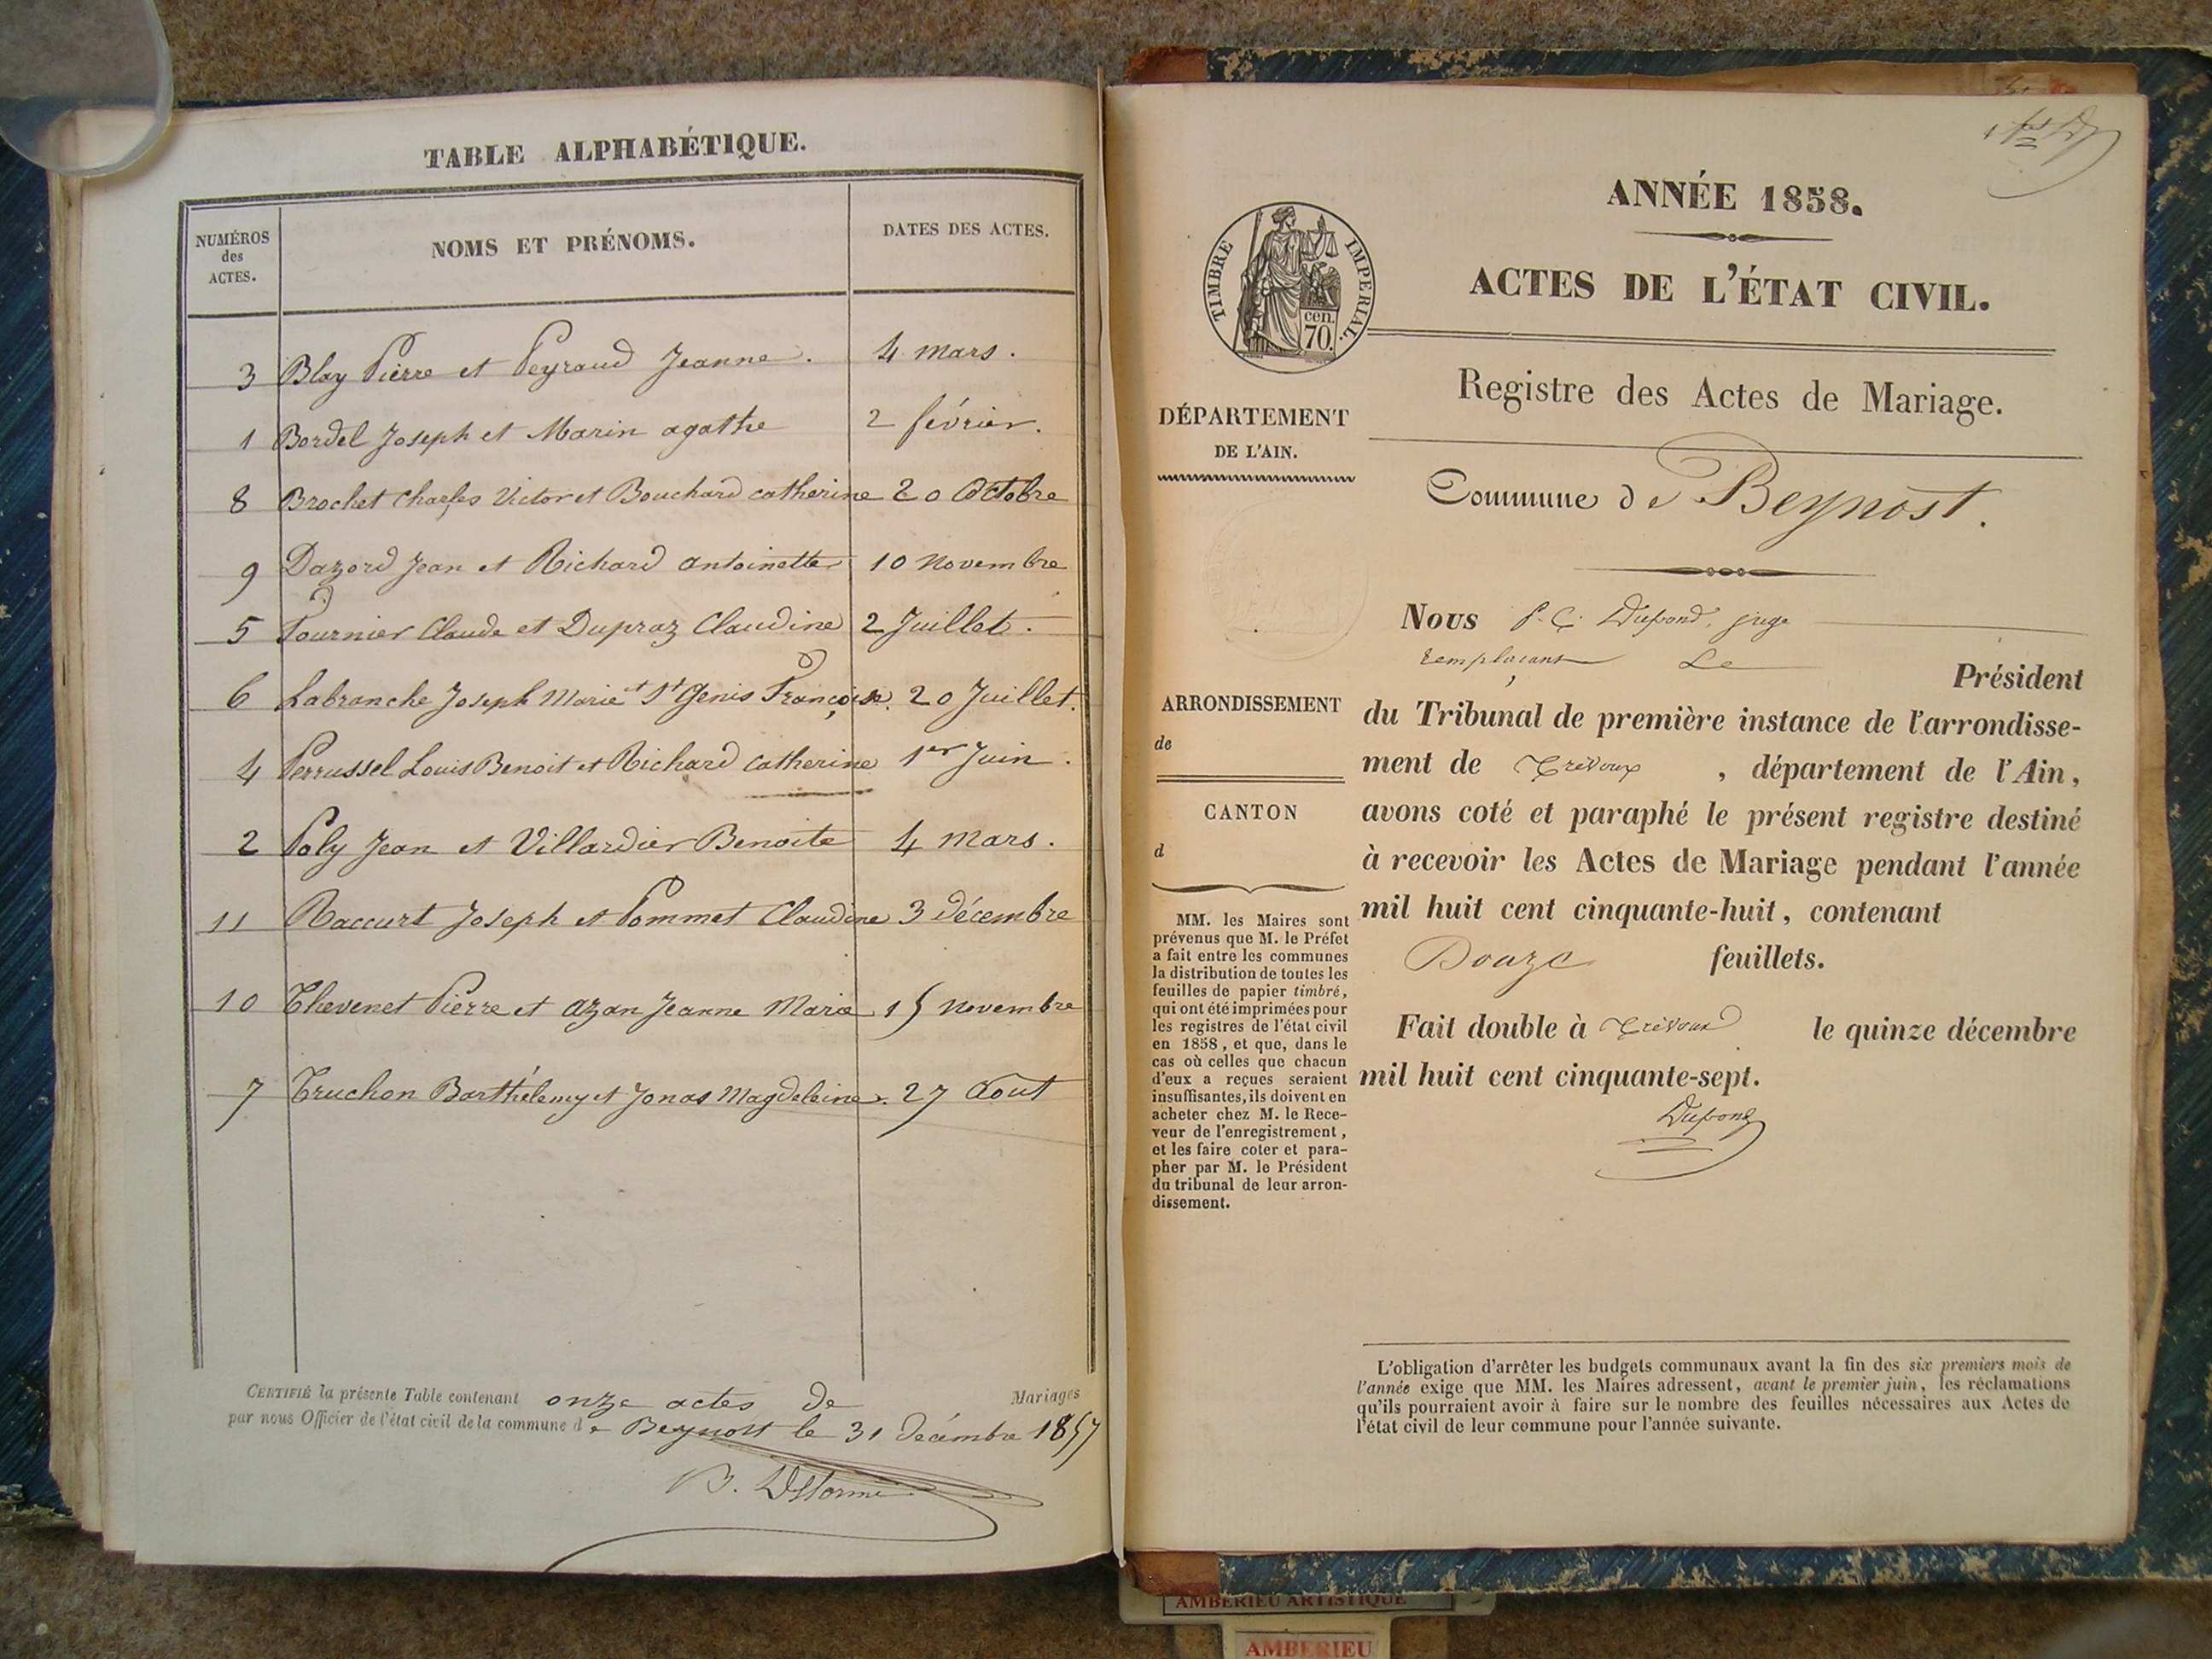 TABLE ALPHABÉTIQUE.
NUMÉROS des ACTES.
NOMS ET PRÉNOMS.
DATES DES ACTES.
3 Blay Pierre et Peyraud Jeanne. 4 mars.
1 Bordel Joseph et Marin agathe 2 février.
8 Brochet Charles Victor et Bouchard catherine 20 Octobre
9 Dazord Jean et Richard antoinette 10 Novembre
5 Fournier Claude et Dupraz Claudine 2 Juillet.
6 Labranche Joseph Marie et St Genis Françoise. 20 Juillet.
4 Perrussel Louis Benoit et Richard catherine 1er Juin.
2 Poly Jean et Villardier Benoite 4 mars.
11 Raccurt Joseph et Pommet Claudine 3 décembre
10 Thevenet Pierre et azan Jeanne Marie 15 novembre
7 Truchon Barthélemy et Jonas Magdeleine. 27 Aout
CERTIFIÉ la présente Table contenant onze actes de Mariages
par nous Officier de l'état civil de la commune de Beynost le 31 Décembre 1857
ANNÉE 1858.
ACTES DE L'ÉTAT CIVIL.
TIMBRE IMPERIAL.
cen.
70.
Registre des Actes de Mariage.
DÉPARTEMENT
DE L'AIN.
Commune de Beynost.
Nous P. C. Dupond, juge
remplaçant Le
Président
ARRONDISSEMENT
de
du Tribunal de première instance de l'arrondisse-
ment de Trévoux, département de l'Ain,
CANTON
d
avons coté et paraphé le présent registre destiné
à recevoir les Actes de Mariage pendant l'année
mil huit cent cinquante-huit, contenant
Douze feuillets.
Fait double à Trévoux le quinze décembre
mil huit cent cinquante-sept.
Dupond
MM. les Maires sont
prévenus que M. le Préfet
a fait entre les communes
la distribution de toutes les
feuilles de papier timbré,
qui ont été imprimées pour
les registres de l'état civil
en 1858, et que, dans le
cas où celles que chacun
d'eux a reçues seraient
insuffisantes, ils doivent en
acheter chez M. le Rece-
veur de l'enregistrement,
et les faire coter et para-
pher par M. le Président
du tribunal de leur arron-
dissement.
L'obligation d'arrêter les budgets communaux avant la fin des six premiers mois de
l'année exige que MM. les Maires adressent, avant le premier juin, les réclamations
qu'ils pourraient avoir à faire sur le nombre des feuilles nécessaires aux Actes de
l'état civil de leur commune pour l'année suivante.
AMBERIEU ARTISTIQUE
AMBERIEU